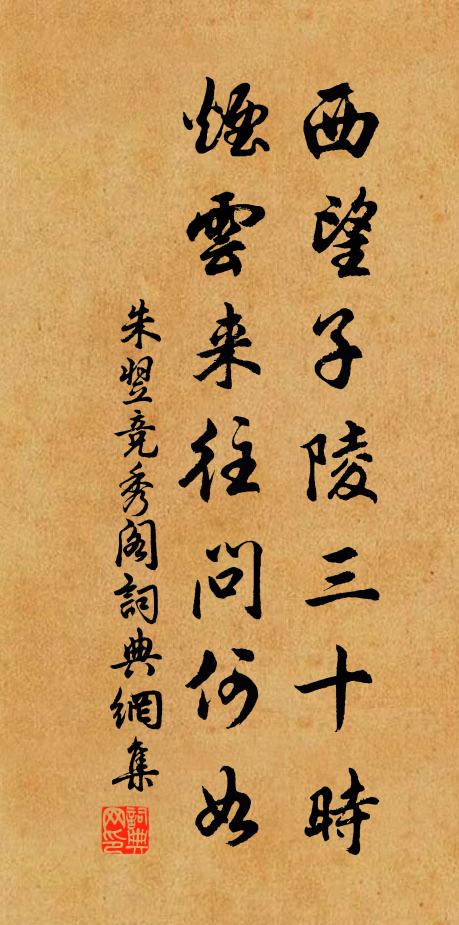 西望子陵三十時
煙雲来往問何如
朱翌竞秀阁詞典網集
詞典网印